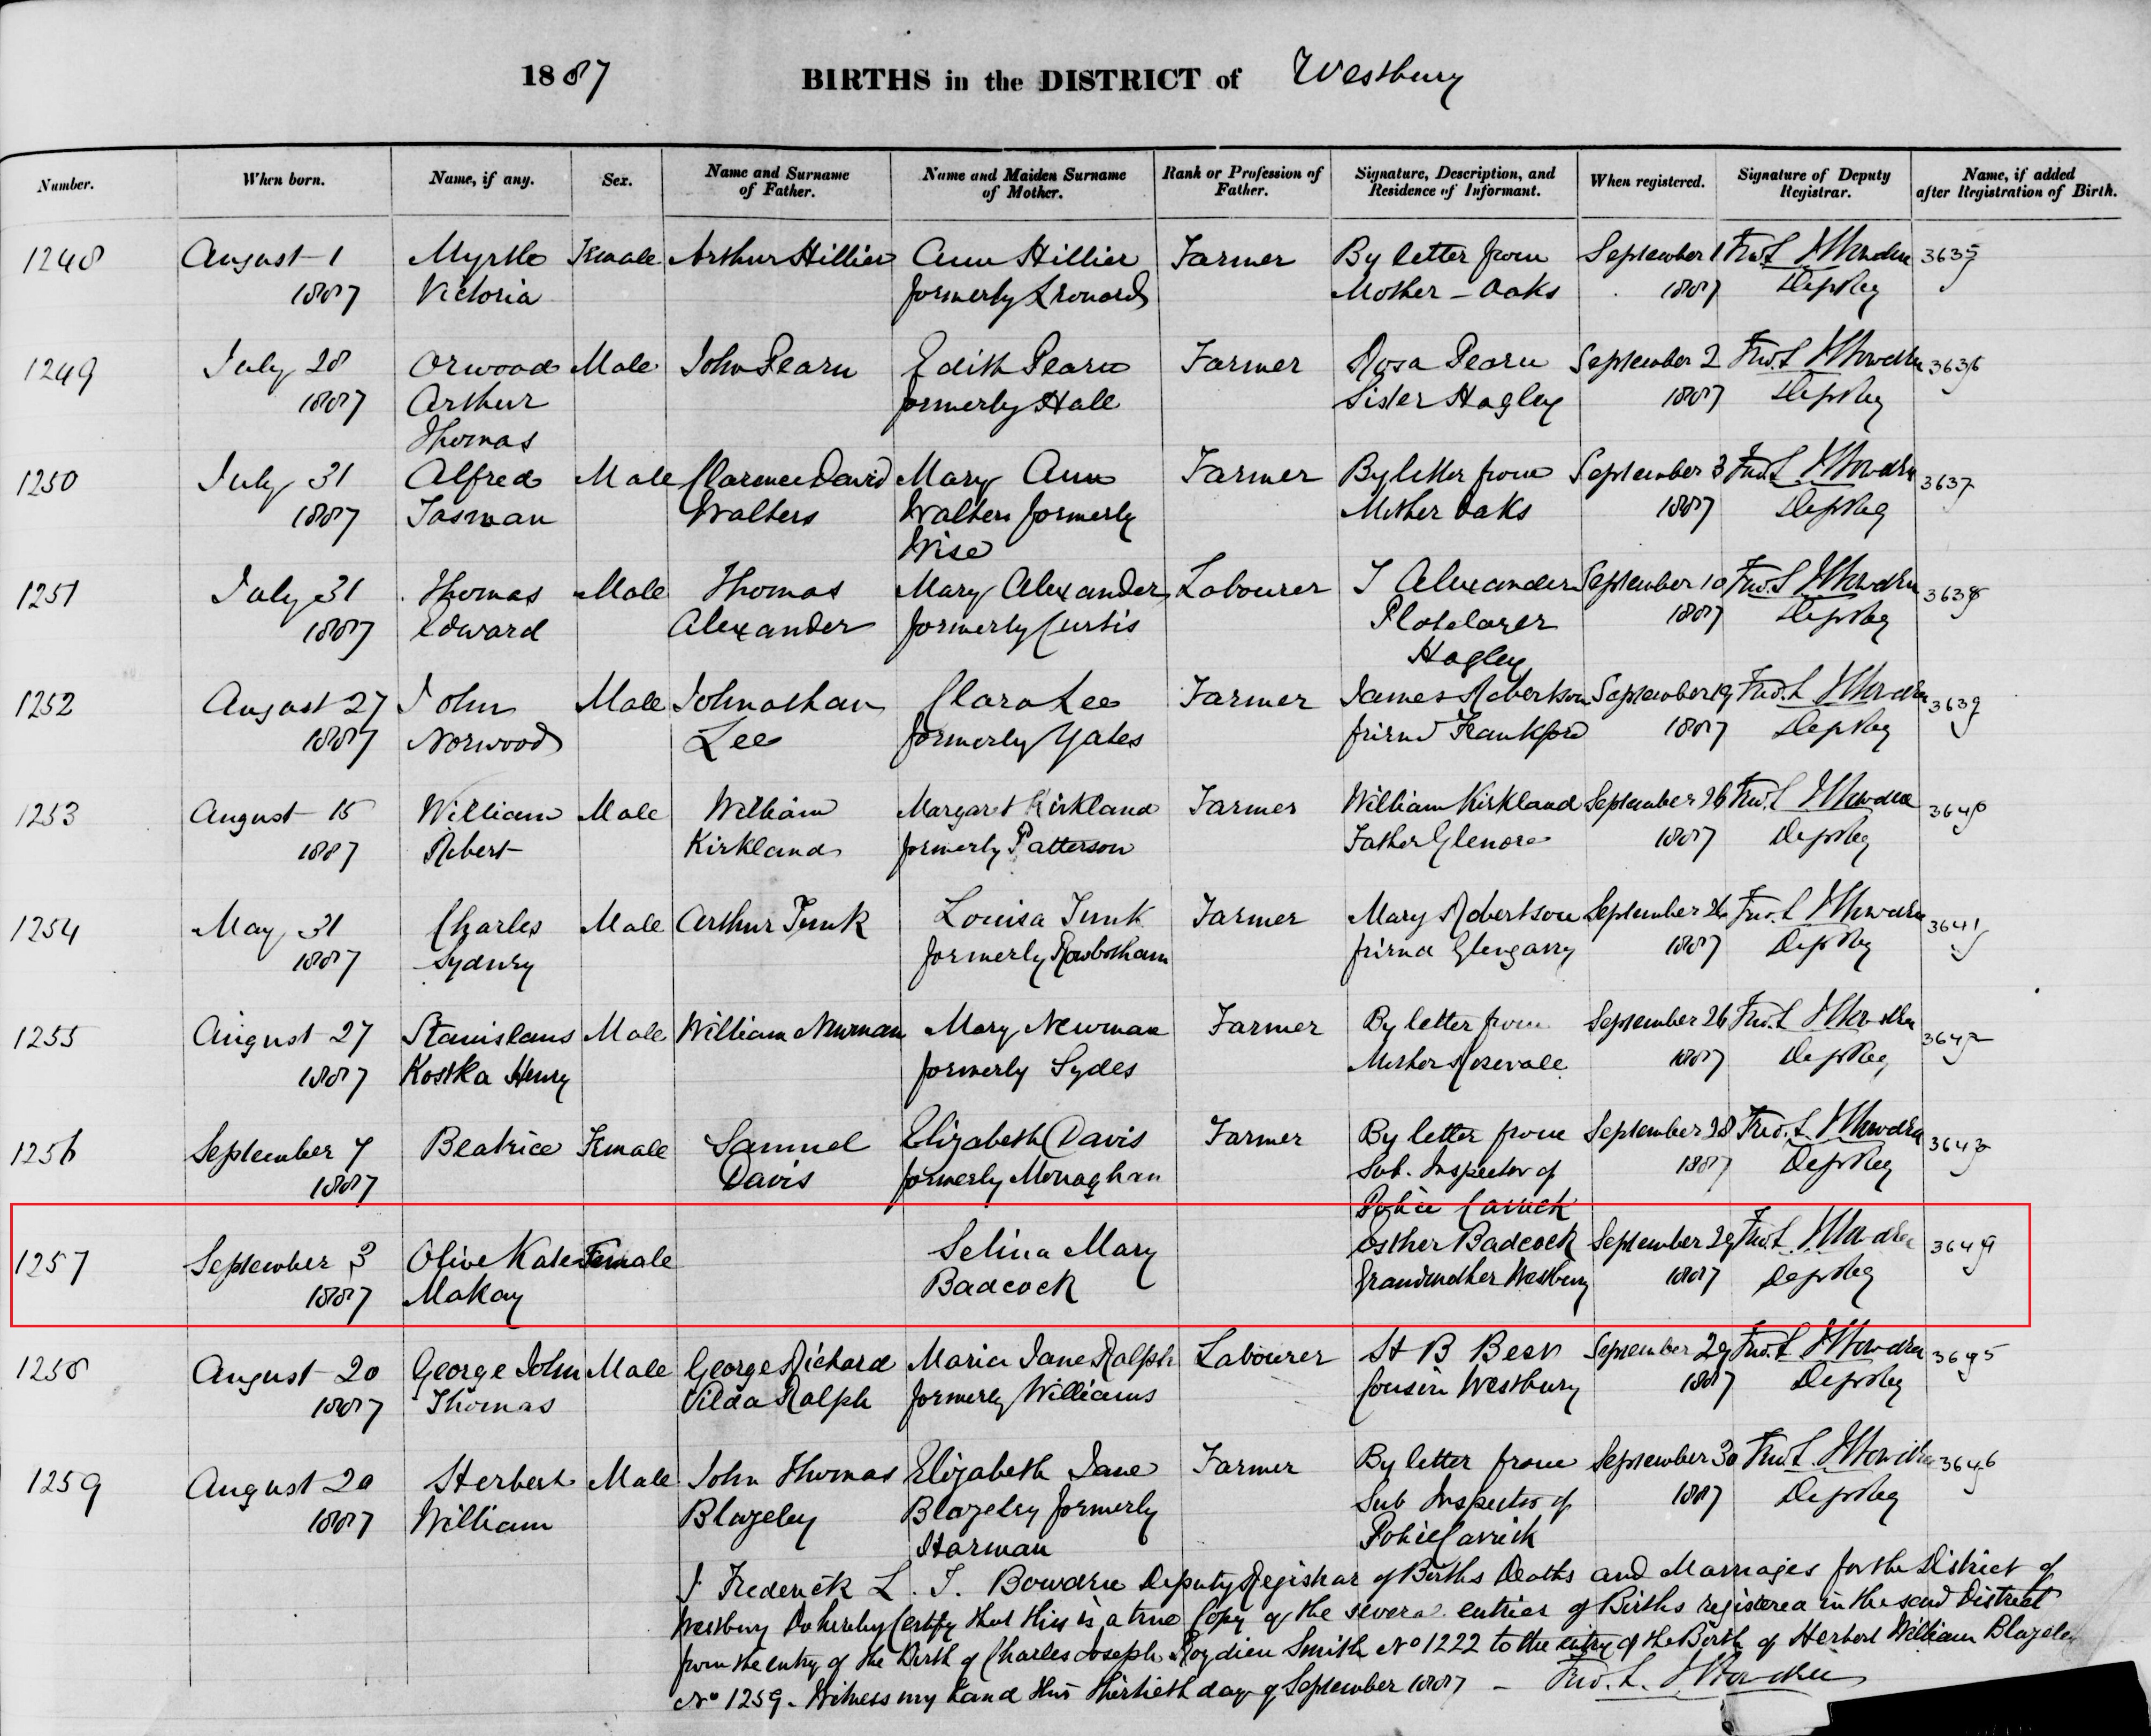 1887 BIRTHS in the DISTRICT of Westbury
Number. When born. Name, if any. Sex. Name and Surname of Father. Name and Maiden Surname of Mother. Rank or Profession of Father. Signature, Description, and Residence of Informant. When registered. Signature of Deputy Registrar. Name, if added after Registration of Birth.
1248 August 1 Myrtle Female Arthur Hillier Ann Hillier Farmer By letter from September 1 Fred. L 3635
1887 Victoria formerly Leonard Mother - Oaks 1887 Dep Reg
1249 July 28 Orwood Male John Pearn Edith Pearn Farmer Rosa Pearn September 2 Fred. L 3636
1887 Arthur formerly Hall Sister Hagley 1887 Dep Reg
Thomas
1250 July 31 Alfred Male Clarence David Mary Ann Farmer By letter from September 3 Fred. L 3637
1887 Tasman Walters Walters formerly Mother Oaks 1887 Dep Reg
Wise
1251 July 31 Thomas Male Thomas Mary Alexander Labourer T Alexander September 10 Fred. L 3638
1887 Edward Alexander formerly Curtis Platelayer 1887 Dep Reg
Hagley
1252 August 27 John Male Johnathan Clara Lee Farmer James Robertson September 19 Fred. L 3639
1887 Norwood Lee formerly Yates friend Frankford 1887 Dep Reg
1253 August 15 William Male William Margaret Kirkland Farmer William Kirkland September 26 Fred. L 3640
1887 Robert Kirkland formerly Patterson Father Glenore 1887 Dep Reg
1254 May 31 Charles Male Arthur Louisa Farmer Mary Robertson September 26 Fred. L 3641
1887 Sydney formerly Rowbotham friend Glengarry 1887 Dep Reg
1255 August 27 Stanislaus Male William Newman Mary Newman Farmer By letter from September 26 Fred. L 3642
1887 Kostka Henry formerly Sydes Mother Rosevale 1887 Dep Reg
1256 September 7 Beatrice Female Samuel Elizabeth Davis Farmer By letter from September 28 Fred. L 3643
1887 Davis formerly Monaghan Sub. Inspector of 1887 Dep Reg
Police Carrick
1257 September 3 Olive Kate Female Selina Mary Esther Badcock September 29 Fred. L 3644
1887 Makay Badcock Grandmother Westbury 1887 Dep Reg
1258 August 20 George John Male George Richard Maria Jane Ralph Labourer B Best September 29 Fred. L 3645
1887 Thomas Ralph formerly Williams Cousin Westbury 1887 Dep Reg
1259 August 20 Herbert Male John Thomas Elizabeth Jane Farmer By letter from September 30 Fred. L 3646
1887 William Blazeley Blazeley formerly Sub Inspector of 1887 Dep Reg
Harman Police Carrick
I Frederick L. J. Bowdru Deputy Registrar of Births Deaths and Marriages for the District of
Westbury Do hereby Certify that this is a true Copy of the several entries of Births registered in the said District
from the entry of the Birth of Charles Joseph Smith No 1222 to the entry of the Birth of Herbert William Blazeley
No 1259 - Witness my hand this thirtieth day of September 1887 - Fred. L.